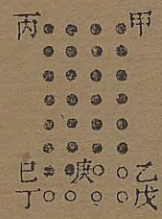 丙 甲
巳 庚 乙
丁 戊